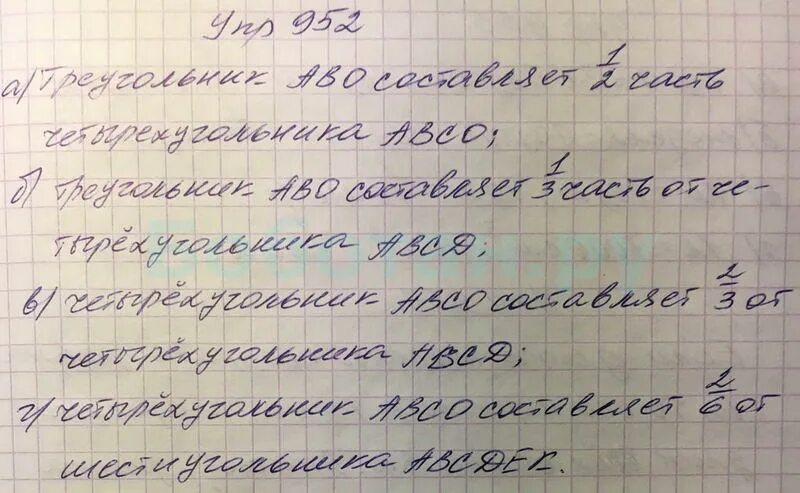 Упр 952
а) Треугольник ABO составляет 1/2 часть
четырехугольника ABCO;
б) треугольник ABO составляет 1/3 часть от че-
тырёхугольника ABCD;
в) четырёхугольник ABCO составляет 2/3 от
четырёхугольника ABCD;
г) четырёхугольник ABCO составляет 2/6 от
шестиугольника ABCDEK.